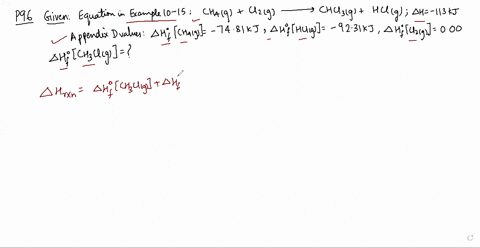 P96 Given: Equation in Example 10-15; CH4(g) + Cl2(g) ⟶ CHCl3(g) + HCl(g); ΔH=-113 kJ
✓ Appendix D values: ΔH°f[CH4(g)] = -74.81 kJ, ΔH°f[HCl(g)] = -92.31 kJ, ΔH°f[Cl2(g)] = 0.00
ΔH°f[CH3Cl(g)] = ?
ΔHrxn = ΔH°f[CH3Cl(g)] + ΔH°f